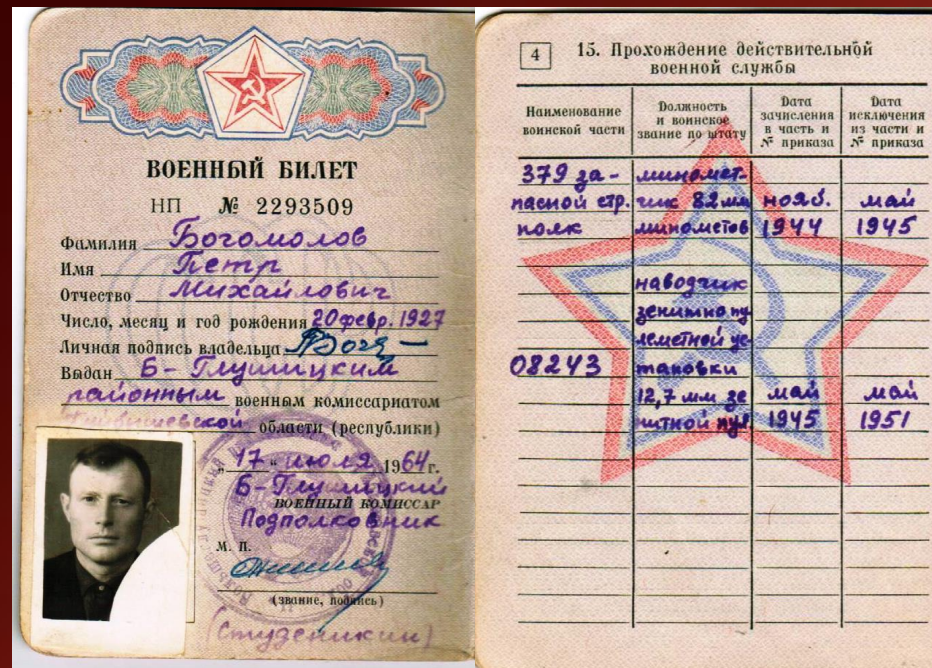 ВОЕННЫЙ БИЛЕТ
НП № 2293509
Фамилия Богомолов
Имя Петр
Отчество Михайлович
Число, месяц и год рождения 20 февр. 1927
Личная подпись владельца Бога
Выдан Б-Глушицким
районным военным комиссариатом
Куйбышевской области (республики)
„17" июля 1964 г.
Б-Глушицкий
ВОЕННЫЙ КОМИССАР
Подполковник
М. П.
(звание, подпись)
(Студеникин)
4
15. Прохождение действительной
военной службы
Наименование
воинской части
Должность
и воинское
звание по штату
Дата
зачисления
в часть и
№ приказа
Дата
исключения
из части и
№ приказа
379 за-
пасной стр.
полк
миномет-
чик 82 мм
минометов
нояб.
1944
май
1945
08243
наводчик
зенитно пу
леметной ус-
тановки
12,7 мм зе
нитной пул
май
1945
май
1951